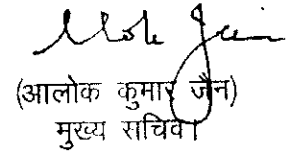 Alok Jain
(आलोक कुमार जैन)
मुख्य सचिव।